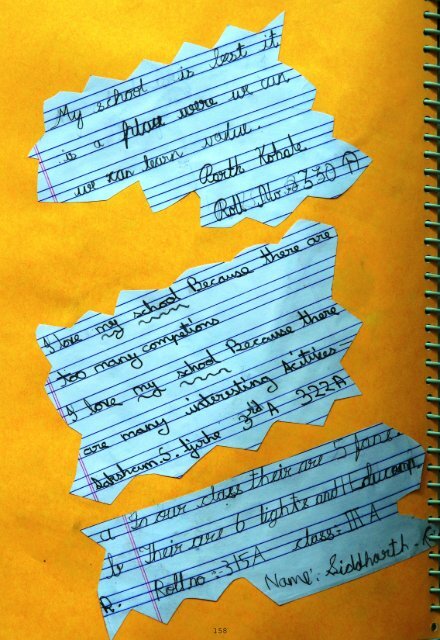 My school is best it
is a place were we can
we can learn value.
Parth Kobale
Roll No. 2330 A
I love my school Because there are
too many competions
I love my school Because there
are many interesting Acitives-
Daksham. S. Jirhe 3rd A 322A
a In our class their are 5 fans
te Their are 6 lights and 1
R. Roll no:-315A class:- III A
Name:- Siddharth. R
158